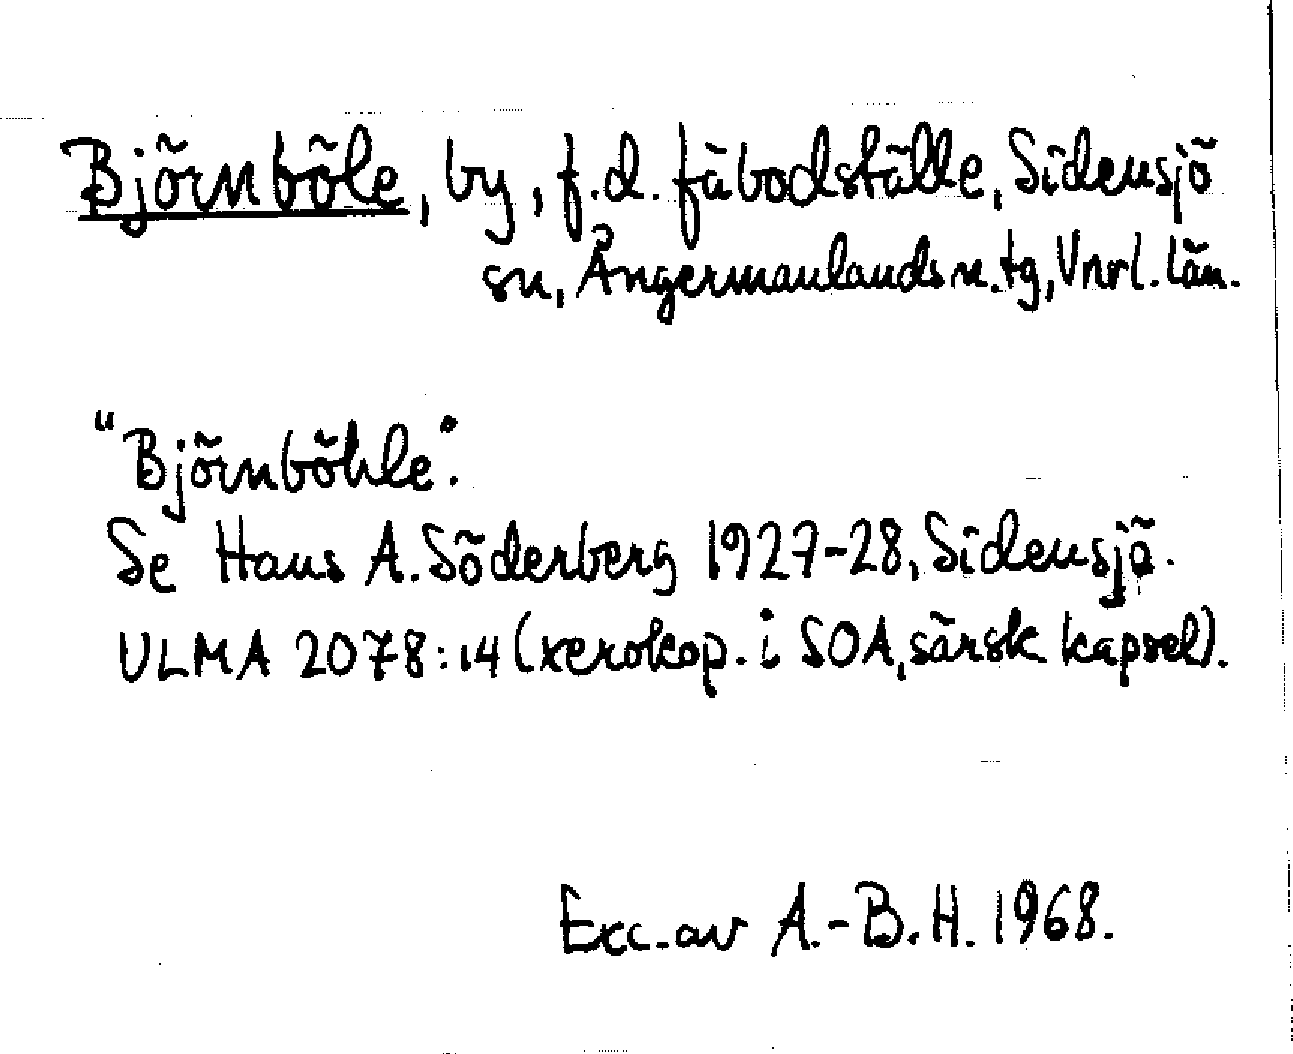 Björnböle, by, f.d. fäbodställe, Sidensjö
sn, Ångermanlands n. tg, Vnrl. län.
"Björnböhle".
Se Hans A. Söderberg 1927-28, Sidensjö.
ULMA 2078:14 (xerokop. i SOA, särsk kapsel).
Exc. av A.-B. H. 1968.